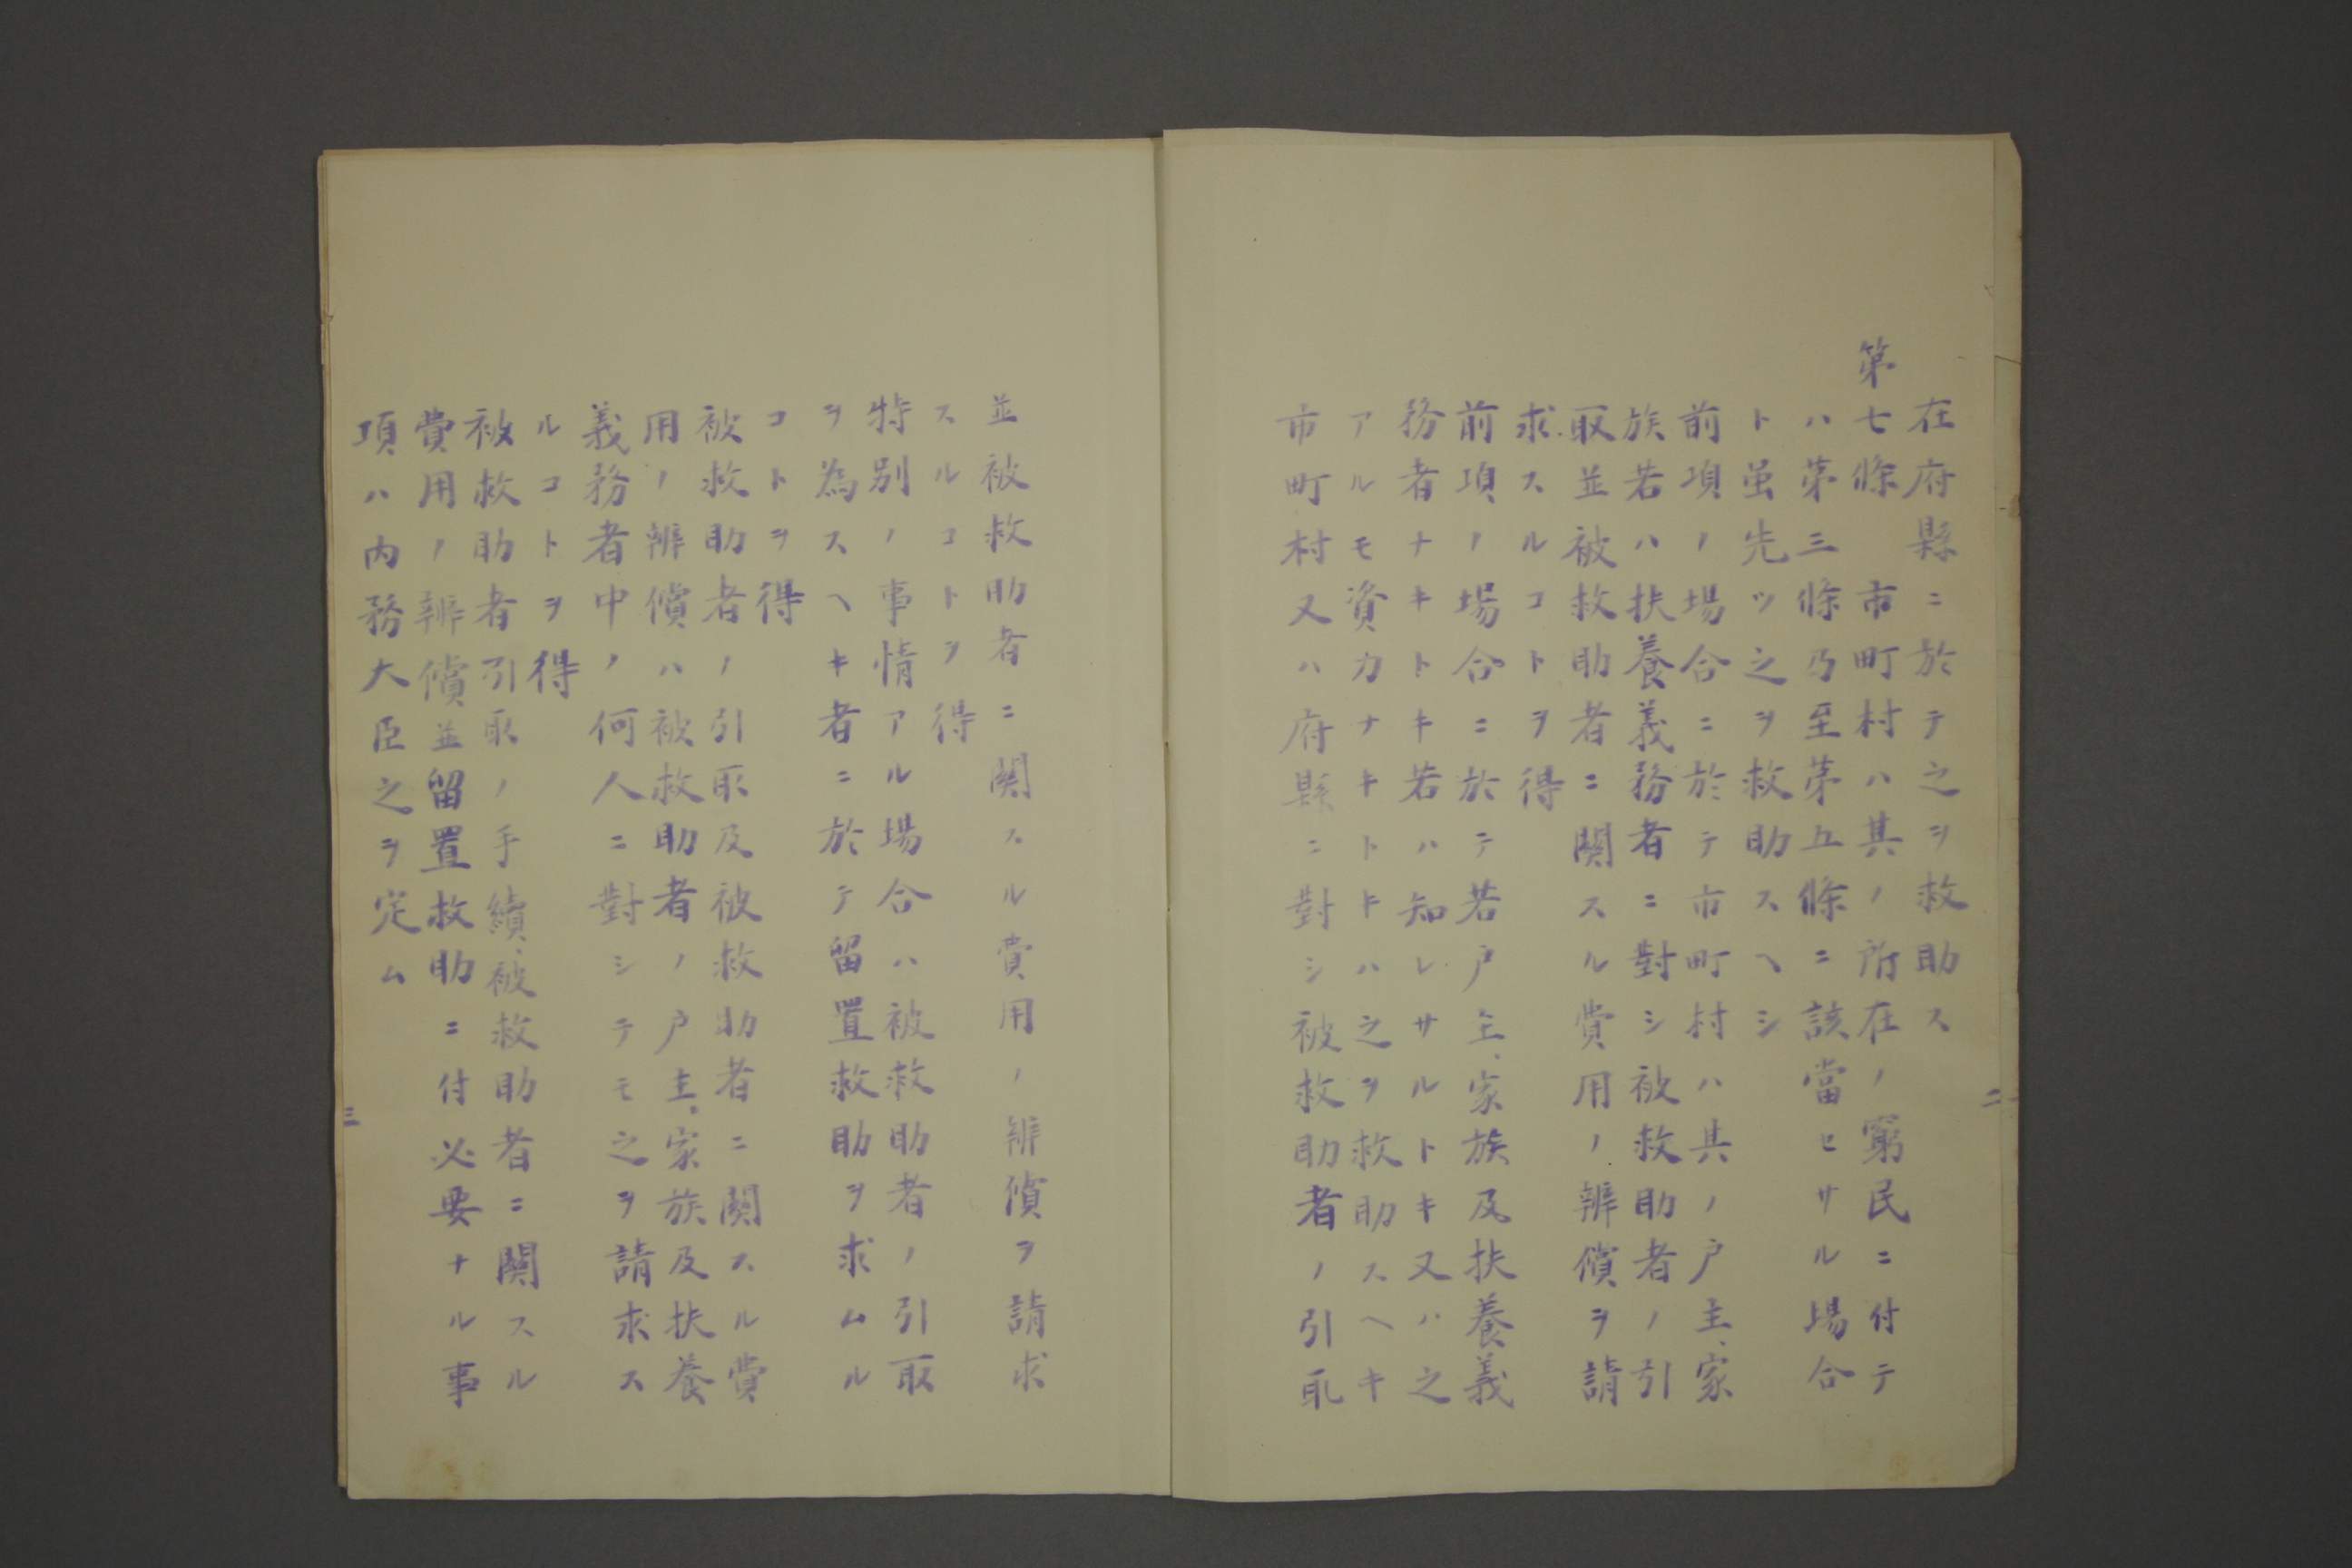 在府縣ニ於テ之ヲ救助ス
第七條　市町村ハ其ノ所在ノ窮民ニ付テ
ハ第三條乃至第五條ニ該當セサル場合
ト虽先ツ之ヲ救助スヘシ
前項ノ場合ニ於テ市町村ハ其ノ戸主、家
族若ハ扶養義務者ニ對シ被救助者ノ引
取並被救助者ニ関スル費用ノ辨償ヲ請
求スルコトヲ得
前項ノ場合ニ於テ若戸主、家族及扶養義
務者ナキトキ若ハ知レサルトキ又ハ之
アルモ資力ナキトトハ之ヲ救助スヘキ
市町村又ハ府縣ニ對シ被救助者ノ引取
二
並被救助者ニ関スル費用ノ辨償ヲ請求
スルコトヲ得
特別ノ事情アル場合ハ被救助者ノ引取
ヲ為スヘキ者ニ於テ留置救助ヲ求ムル
コトヲ得
被救助者ノ引取及被救助者ニ関スル費
用ノ辨償ハ被救助者ノ戸主、家族及扶養
義務者中ノ何人ニ對シテモ之ヲ請求ス
ルコトヲ得
被救助者引取ノ手續、被救助者ニ関スル
費用ノ辨償並留置救助ニ付必要ナル事
項ハ内務大臣之ヲ定ム
三